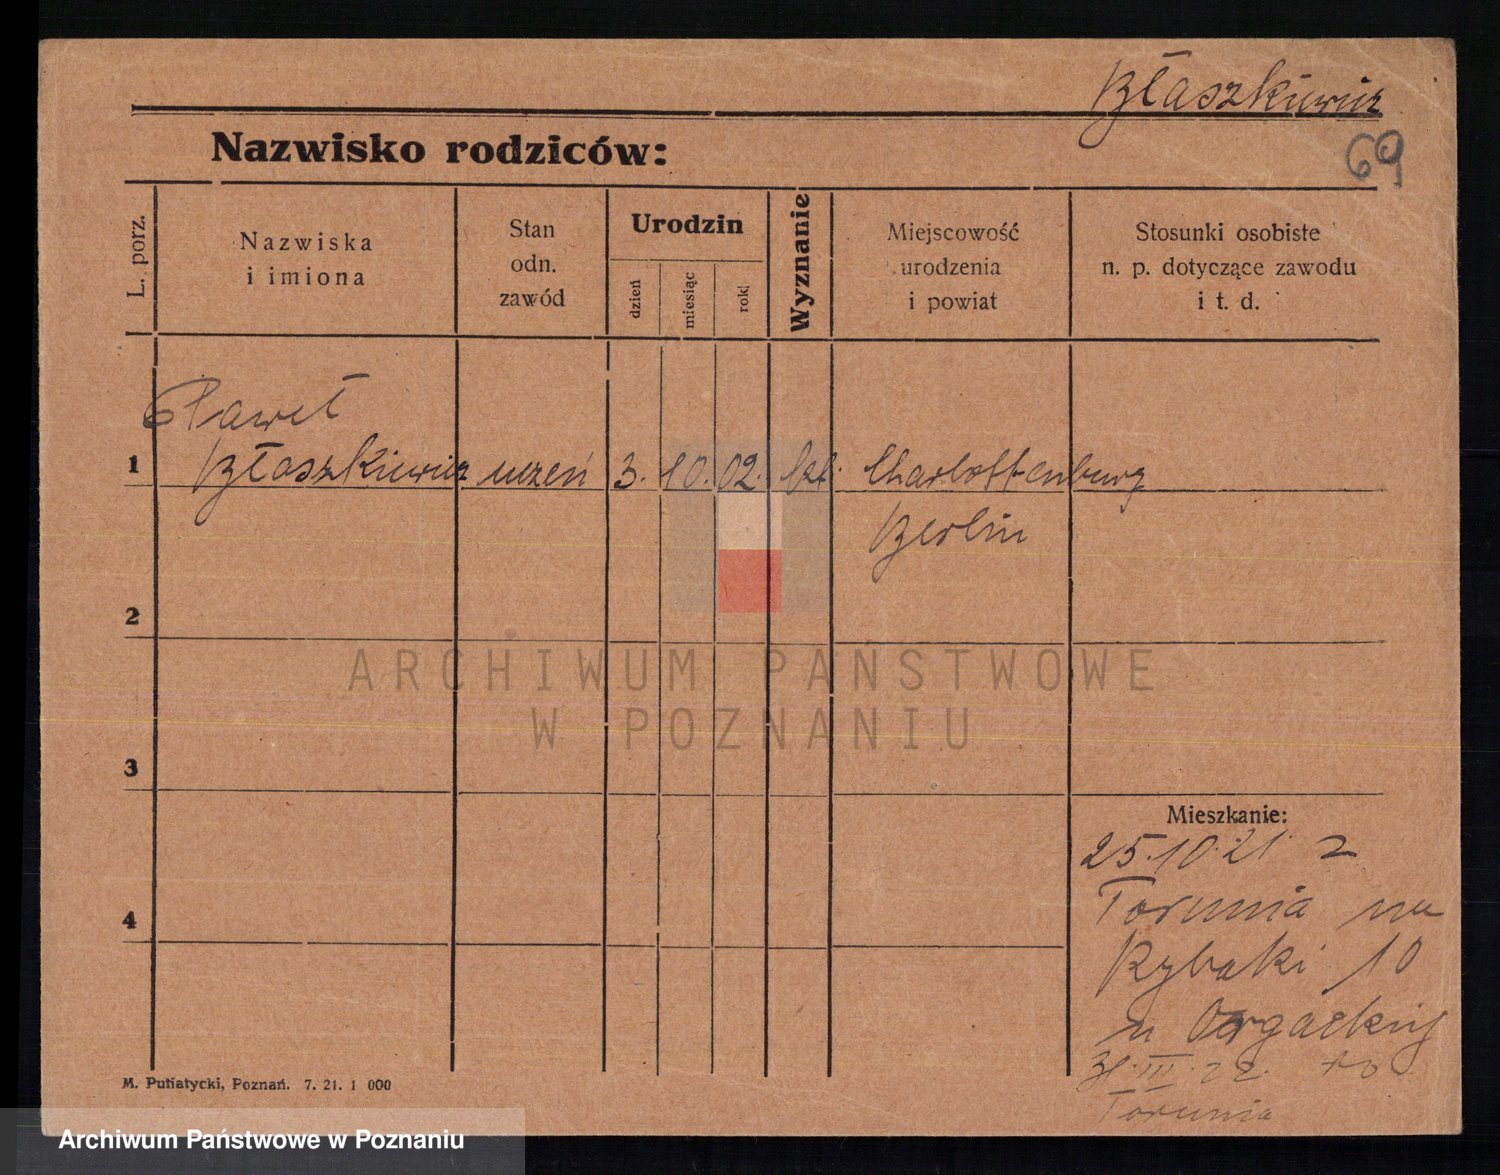 Błaszkiewicz
69
Nazwisko rodziców:
L. porz.
Nazwiska
i imiona
Stan
odn.
zawód
Urodzin
dzień
miesiąc
rok
Wyznanie
Miejscowość
urodzenia
i powiat
Stosunki osobiste
n. p. dotyczące zawodu
i t. d.
Paweł
1 Błaszkiewicz uczeń 3. 10. 02. kat. Charlottenburg
Berlin
2
ARCHIWUM PAŃSTWOWE
W POZNANIU
3
Mieszkanie:
25.10.21 z
Torunia na
4
Rybaki 10
u
31.III.22. do
Torunia
M. Putiatycki, Poznań. 7. 21. 1 000
Archiwum Państwowe w Poznaniu